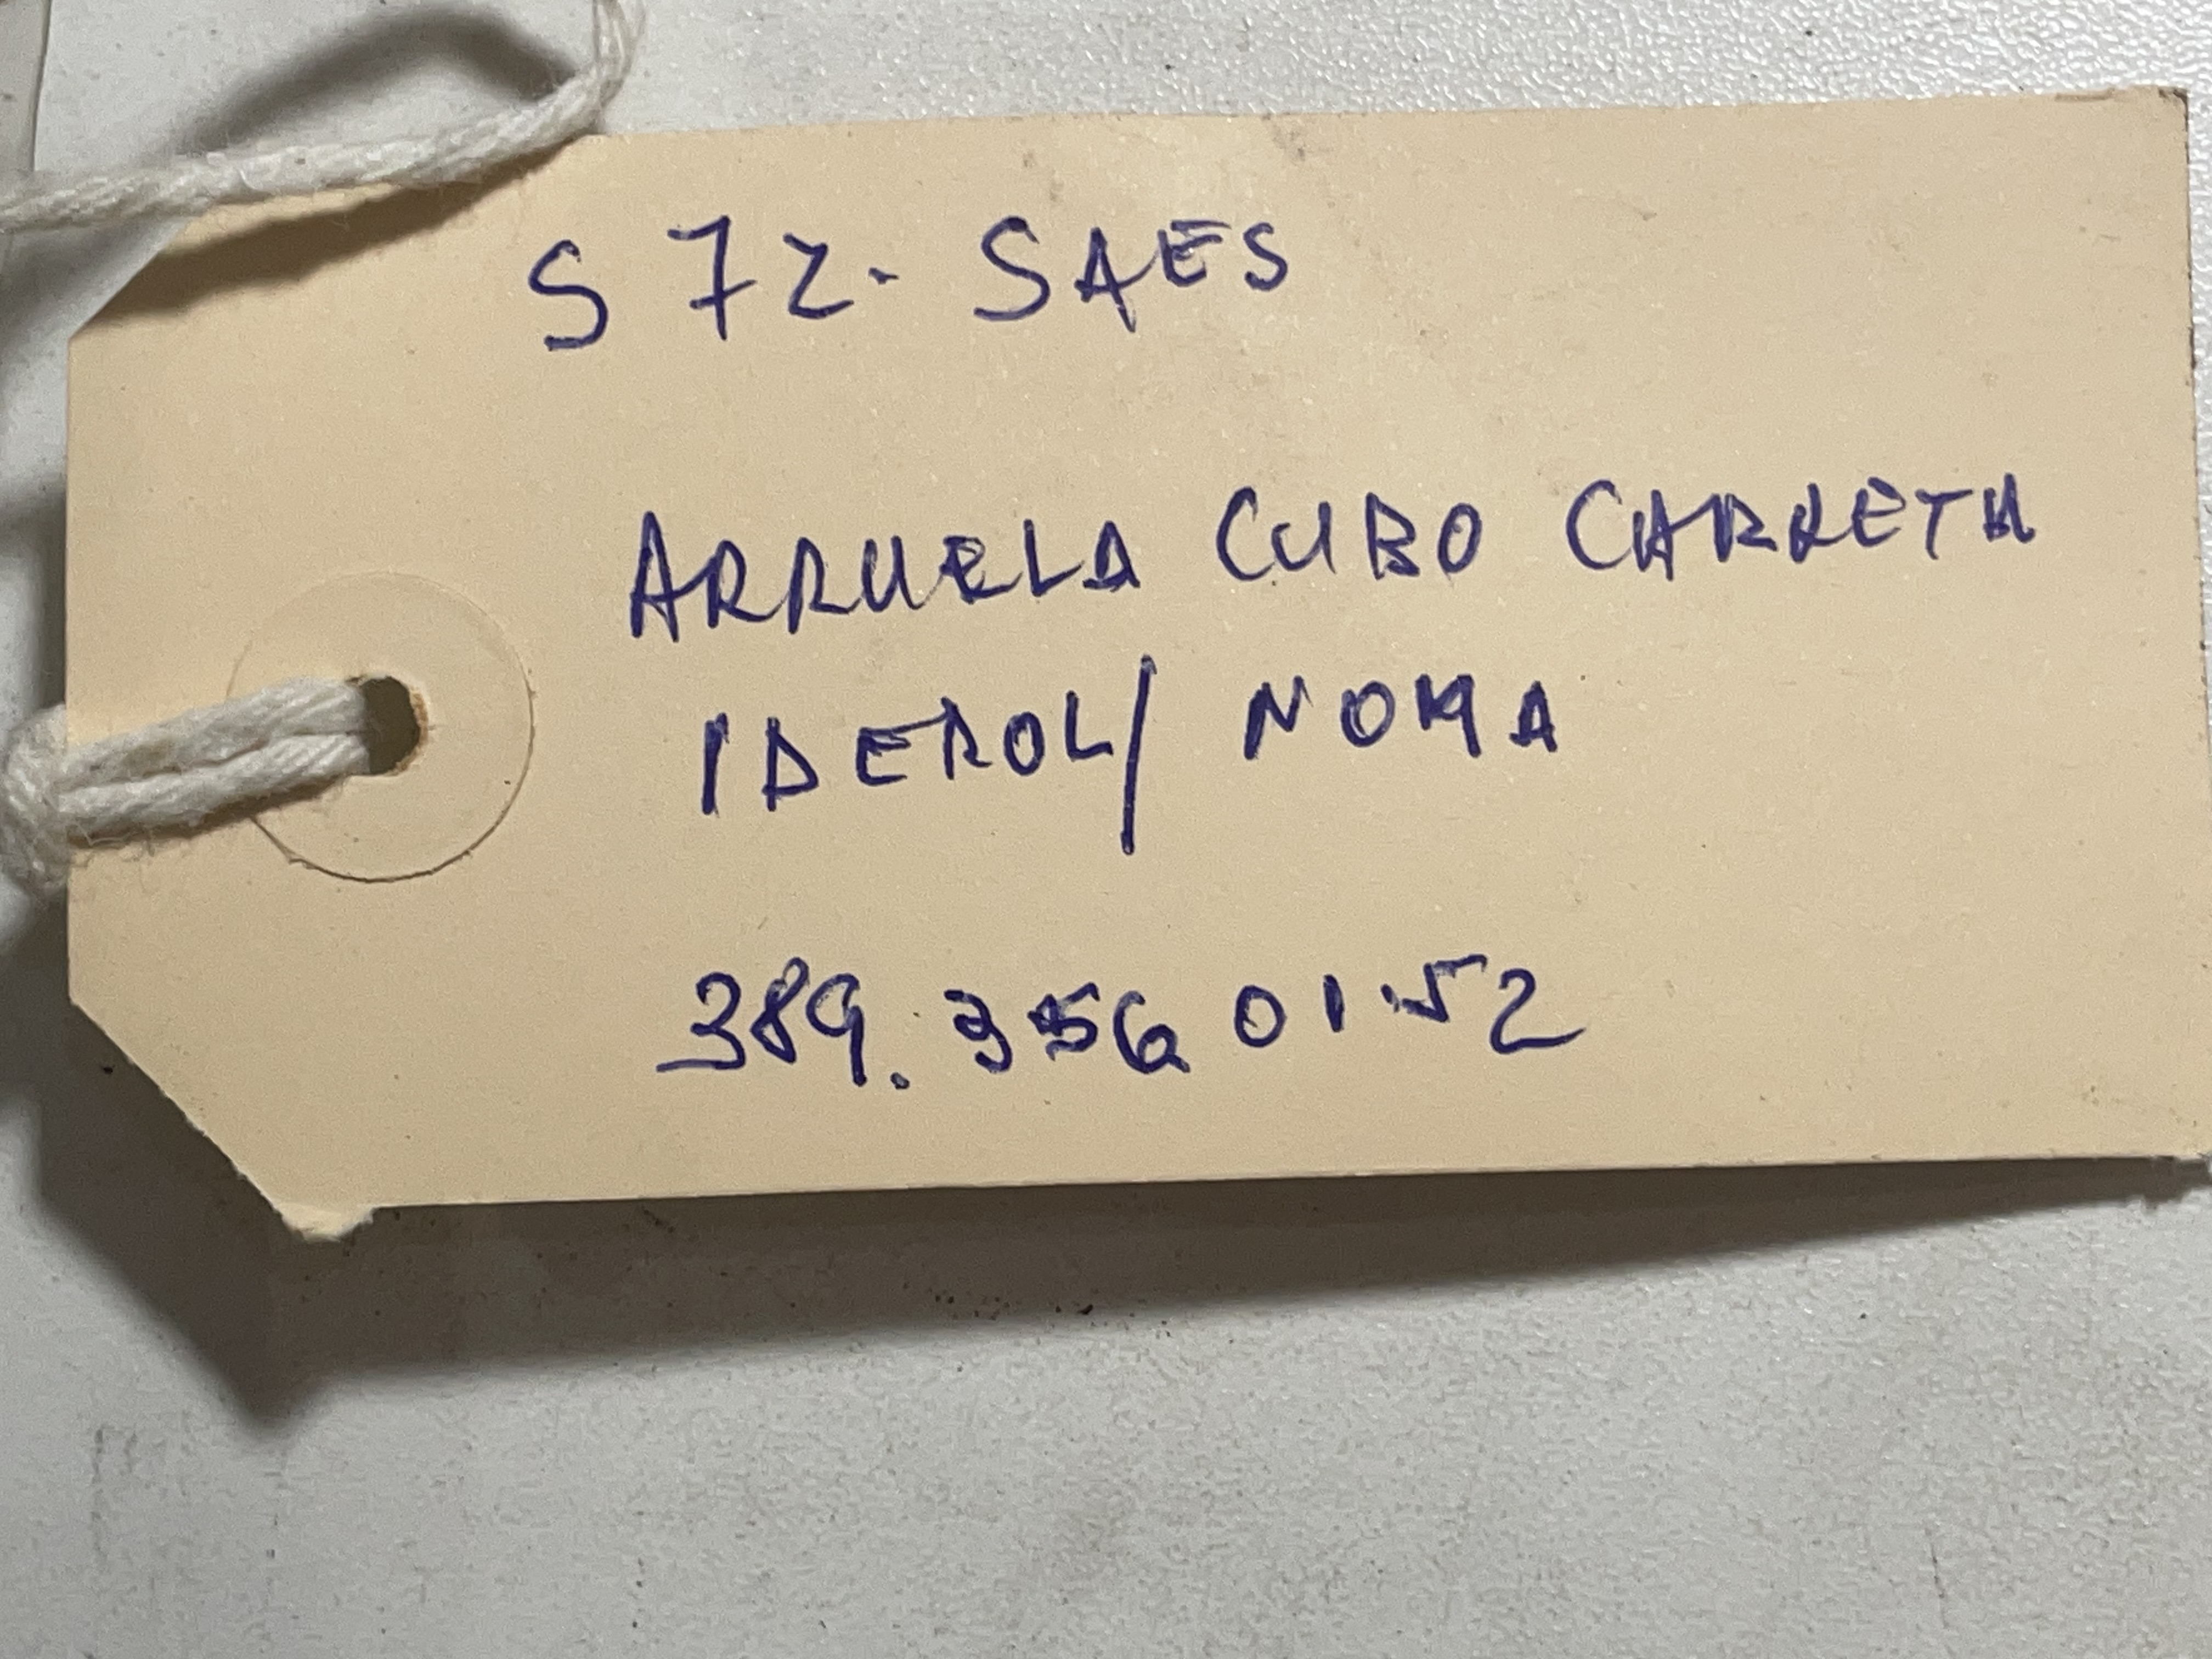 S 72. SAES
ARRUELA CUBO CARRETA
IDEROL/ NOMA
389.356 0152